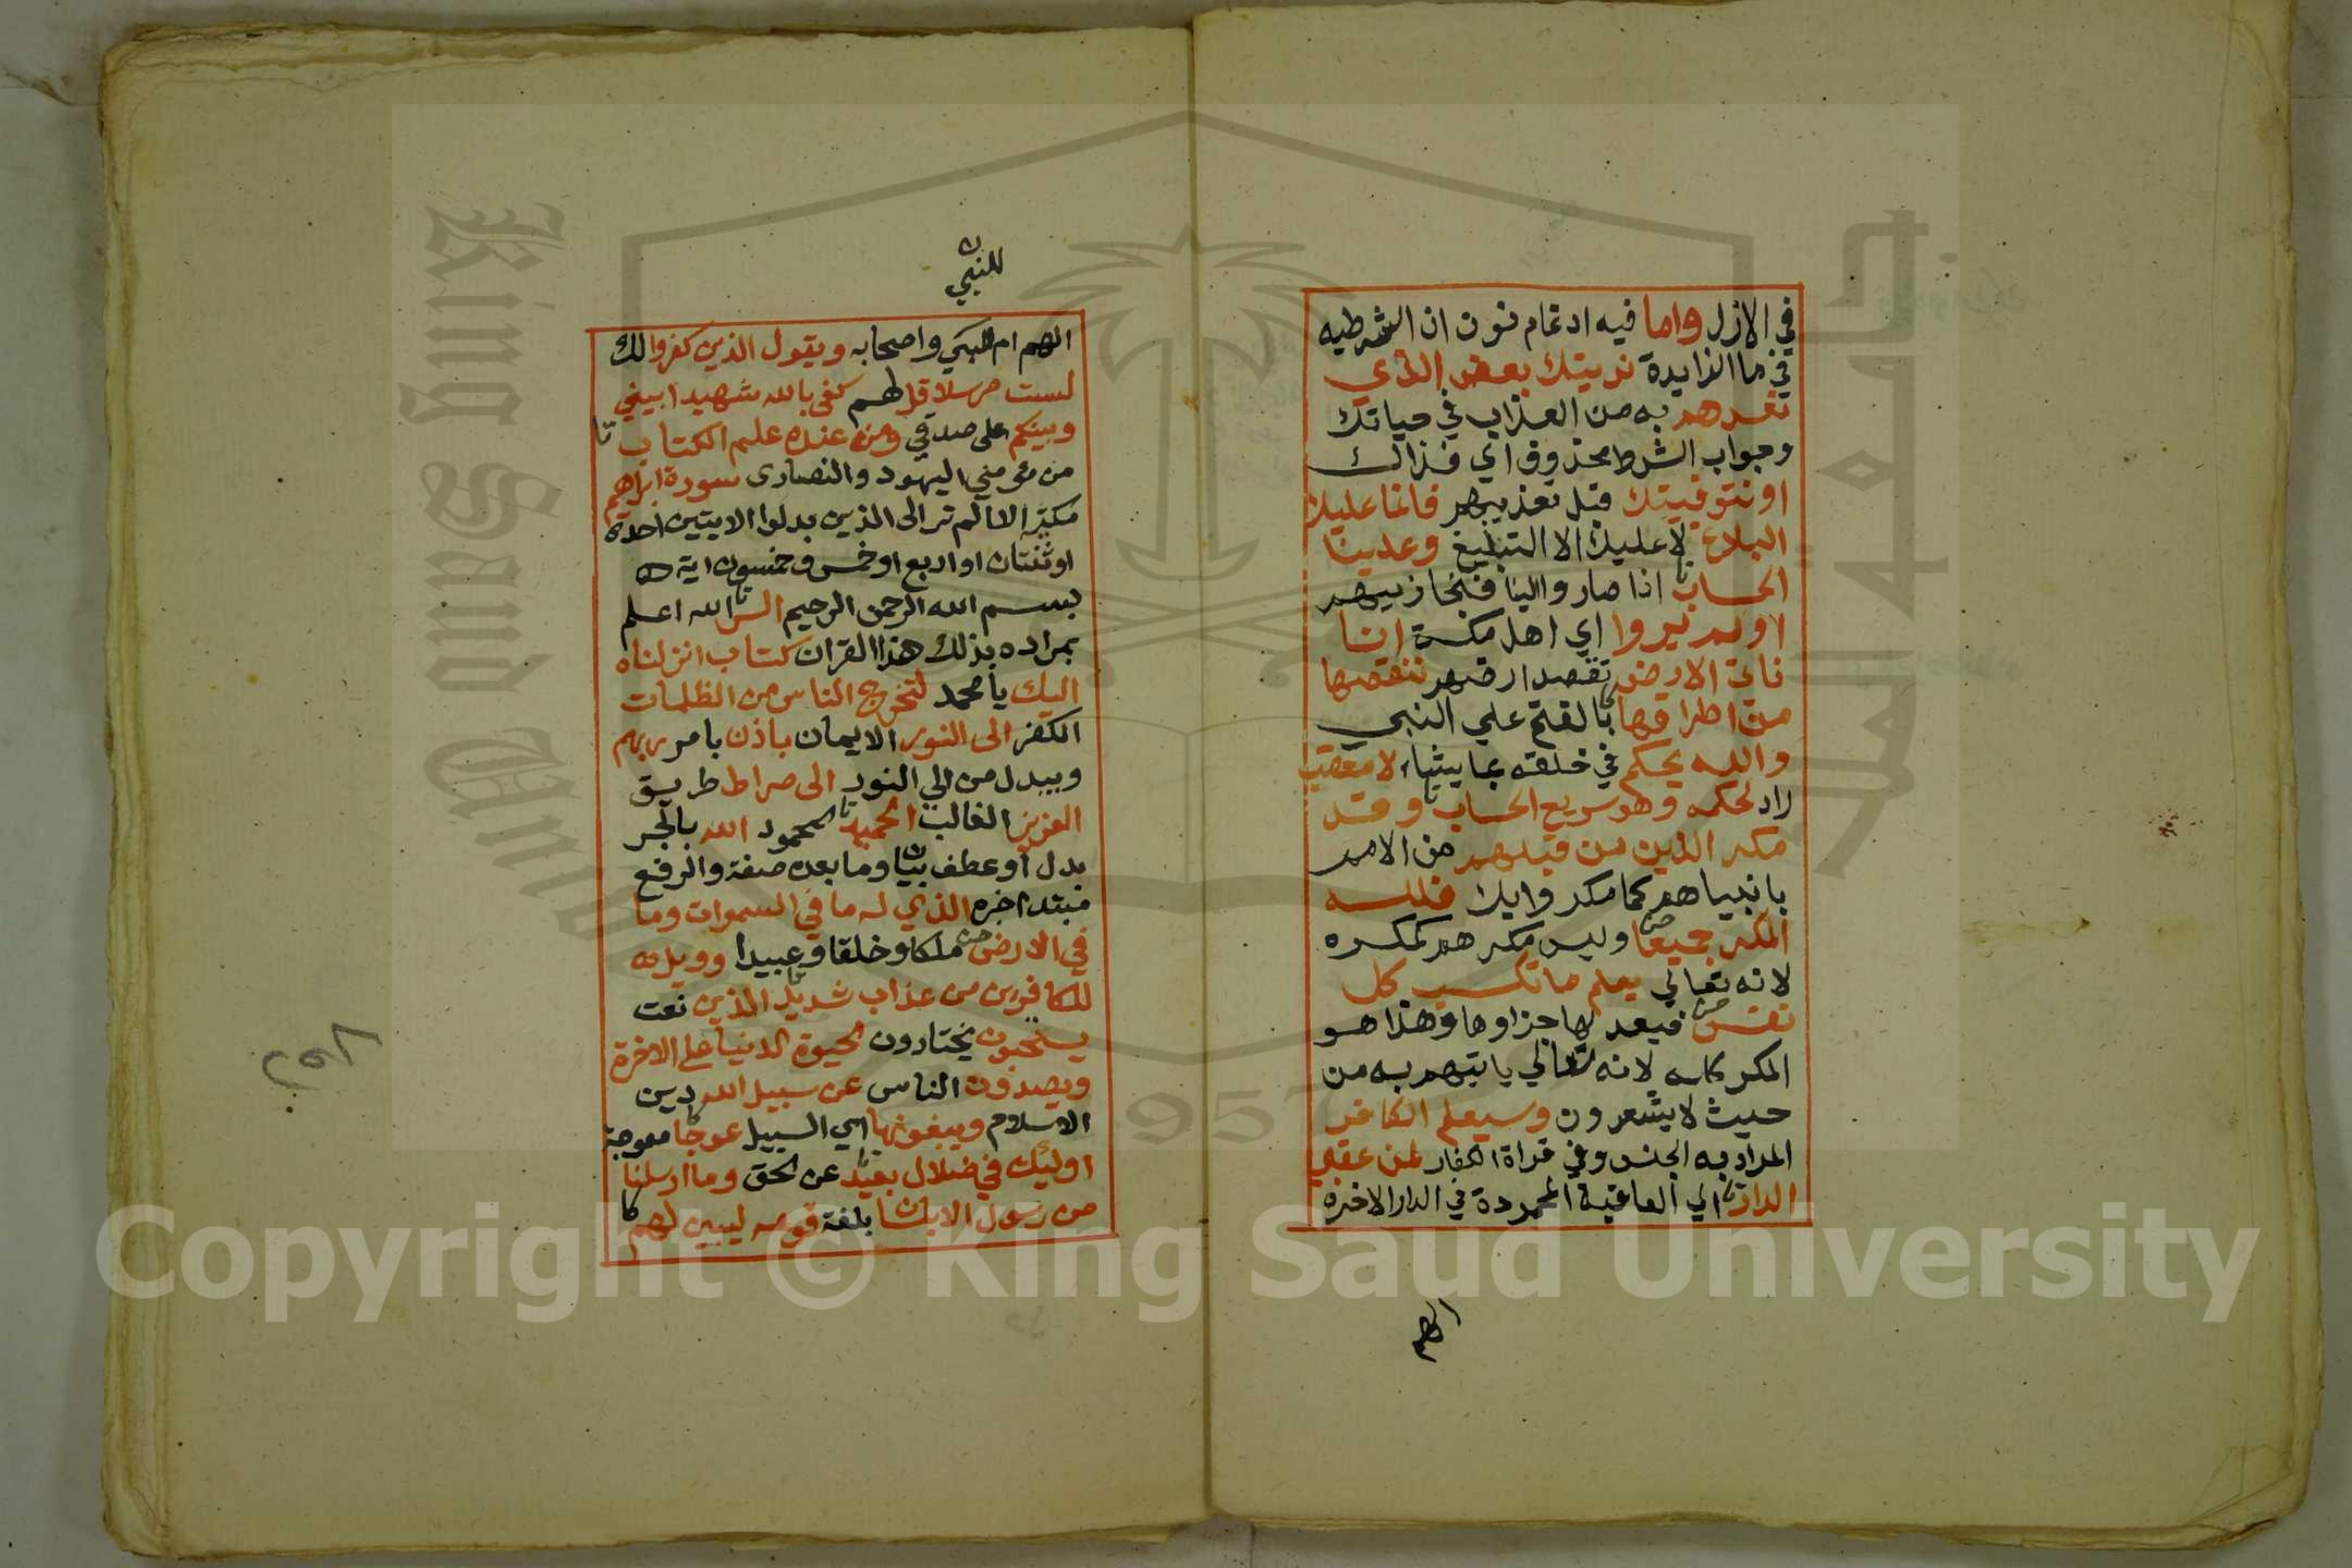 في الازل واما فيه ادغام نون ان الشرطيه
في ما الزايدة نرينك بعض الذي
نعدهم به من العذاب في حياتك
وجواب الشرط محذوف اي فذالك
او نتوفينك قبل تعذيبهم فانما عليك
البلاغ لا عليك الا التبليغ وعلينا
الحساب اذا صاروا الينا فنجازيهم
اولم يروا اي اهل مكة انا
ناتي الارض نقصد ارضهم ننقصها
من اطرافها بالفتح علي النبي
والله يحكم في خلقه بما يشاء لا معقب
راد لحكمه وهو سريع الحساب وقد
مكر الذين من قبلهم من الامم
بانبياهم كما مكروا بك فلله
المكر جميعا وليس مكرهم كمكره
لانه تعالي يعلم ما تكسب كل
نفس فيعد لها جزاوها وهذا هو
المكر كله لانه تعالي ياتيهم به من
حيث لا يشعرون وسيعلم الكافر
المراد به الجنس وفي قراة الكفار لمن عقبي
الدار اي العاقبة المحمودة في الدار الاخرة
الهم
للنبي
الهم ام للنبي واصحابه ويقول الذين كفروا لك
لست مرسلا قل لهم كفى بالله شهيدا بيني
وبينكم على صدقي ومن عنده علم الكتاب
من مؤمني اليهود والنصارى سورة ابراهيم
مكية الا الم تر الى الذين بدلوا الايتين احدى
او ثنتان او اربع او خمس وخمسون اية
بسم الله الرحمن الرحيم الر الله اعلم
بمراده بذلك هذا القران كتاب انزلناه
اليك يا محمد لتخرج الناس من الظلمات
الكفر الى النور الايمان باذن بامر ربهم
ويبدل من الي النور الى صراط طريق
العزيز الغالب الحميد المحمود الله بالجر
بدل او عطف بيان وما بعده صفة والرفع
مبتدا خبره الذي له ما في السموات وما
في الارض ملكا وخلقا وعبيدا وويل
للكافرين من عذاب شديد الذين نعت
يستحبون يختارون الحيوة الدنيا على الاخرة
ويصدون الناس عن سبيل الله دين
الاسلام ويبغونها اي السبيل عوجا معوجة
اوليك في ضلال بعيد عن الحق وما ارسلنا
من رسول الا بلسان بلغة قومه ليبين لهم
٢٥٨
King Saud University
1957
Copyright © King Saud University